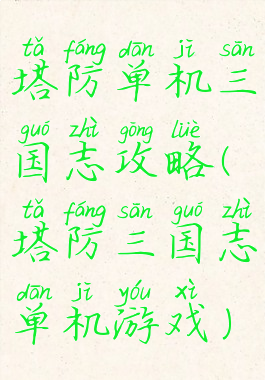 tǎ fáng dān jī sān
塔防单机三
guó zhì gōng lüè
国志攻略(
tǎ fáng sān guó zhì
塔防三国志
dān jī yóu xì
单机游戏)